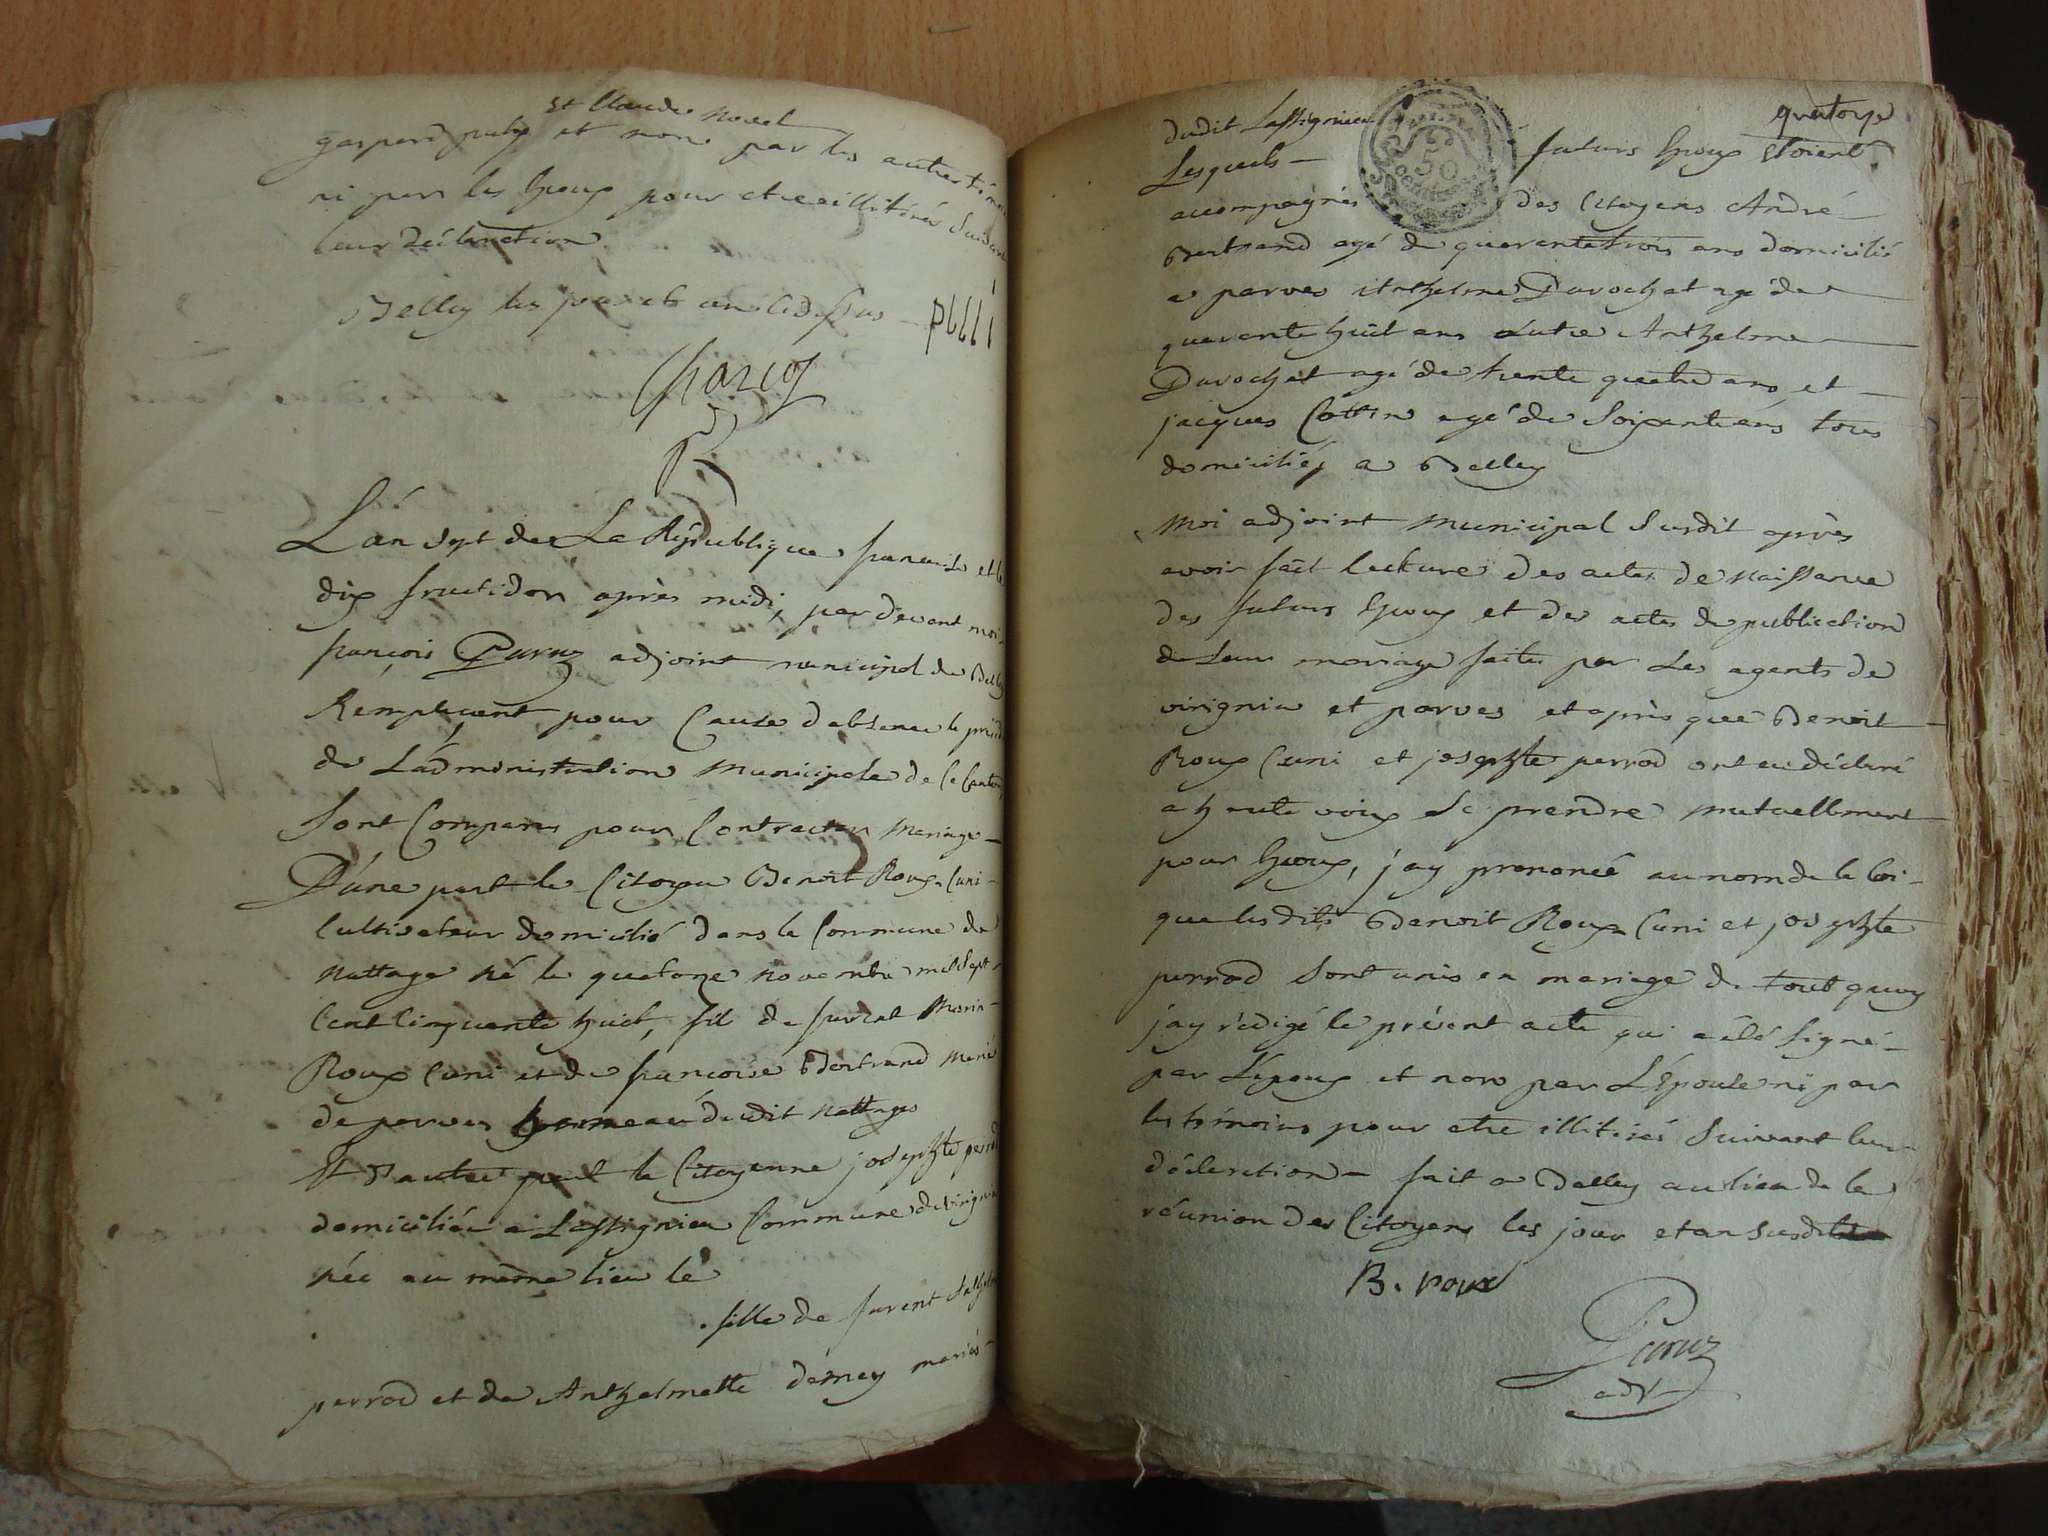 et Claude novel
gaspard et non par les autres témoins
ni par les Epoux pour etre illitérés Suivant
leur déclaration
Belley les jour et an cidessus
L'an Sept de La République francaise et le
dix fructidor après midi, par devant moi
françois Paruz adjoint municipal de Belley
Remplacent pour Cause d'absence le présid
de L'administration Municipale de Ce Canton
Sont Comparus pour Contracter Mariage
D'une part le Citoyen Benoit Roux Cuni
Cultivateur domicilié dans la Commune de
Nattage né le quatorze novembre mil Sept
Cent Cinquante huit, fil de furent
Roux Cuni et de francoise Bertrand Marié
de parves hameau dudit Nattages
Et d'autre part la Citoyenne josephte perrod
domiciliée a Lassignieu Commune de virignin
née au même lieu le
fille de furent
perrod et de Anthelmette démey mariés
quatorze
dudit Lassignieu
Lesquels futurs Epoux Etoient
50
accompagnés des Citoyens André
Bertrand agé de quarante trois ans domicilié
a parves Anthelme Durochat agé de
quarante huit ans autre Anthelme
Durochat agé de trente quatre ans et
jacques Cottin agé de Soixante ans tous
domiciliés a Belley
Moi adjoint Municipal Susdit après
avoir fait Lecture des actes de Naissance
des futurs Epoux et des actes de publication
de Leur mariage faite par Les agents de
virignin et parves et après que Benoit
Roux Cuni et josephte perrod ont eu déclaré
a haute voix Se prendre mutuellement
pour Epoux, j'ay prononcé au nom de la loi
que lesdits Benoit Roux Cuni et josephte
perrod Sont unis en mariage de tout quoy
j'ay rédigé le présent acte qui a été Signé
par L'époux et non par L'Epouse ni par
les témoins pour etre illitirés Suivant leur
déclaration fait a Belley au lieu de la
réunion des Citoyens les jour et an susdit
B. roux
Paruz
adj